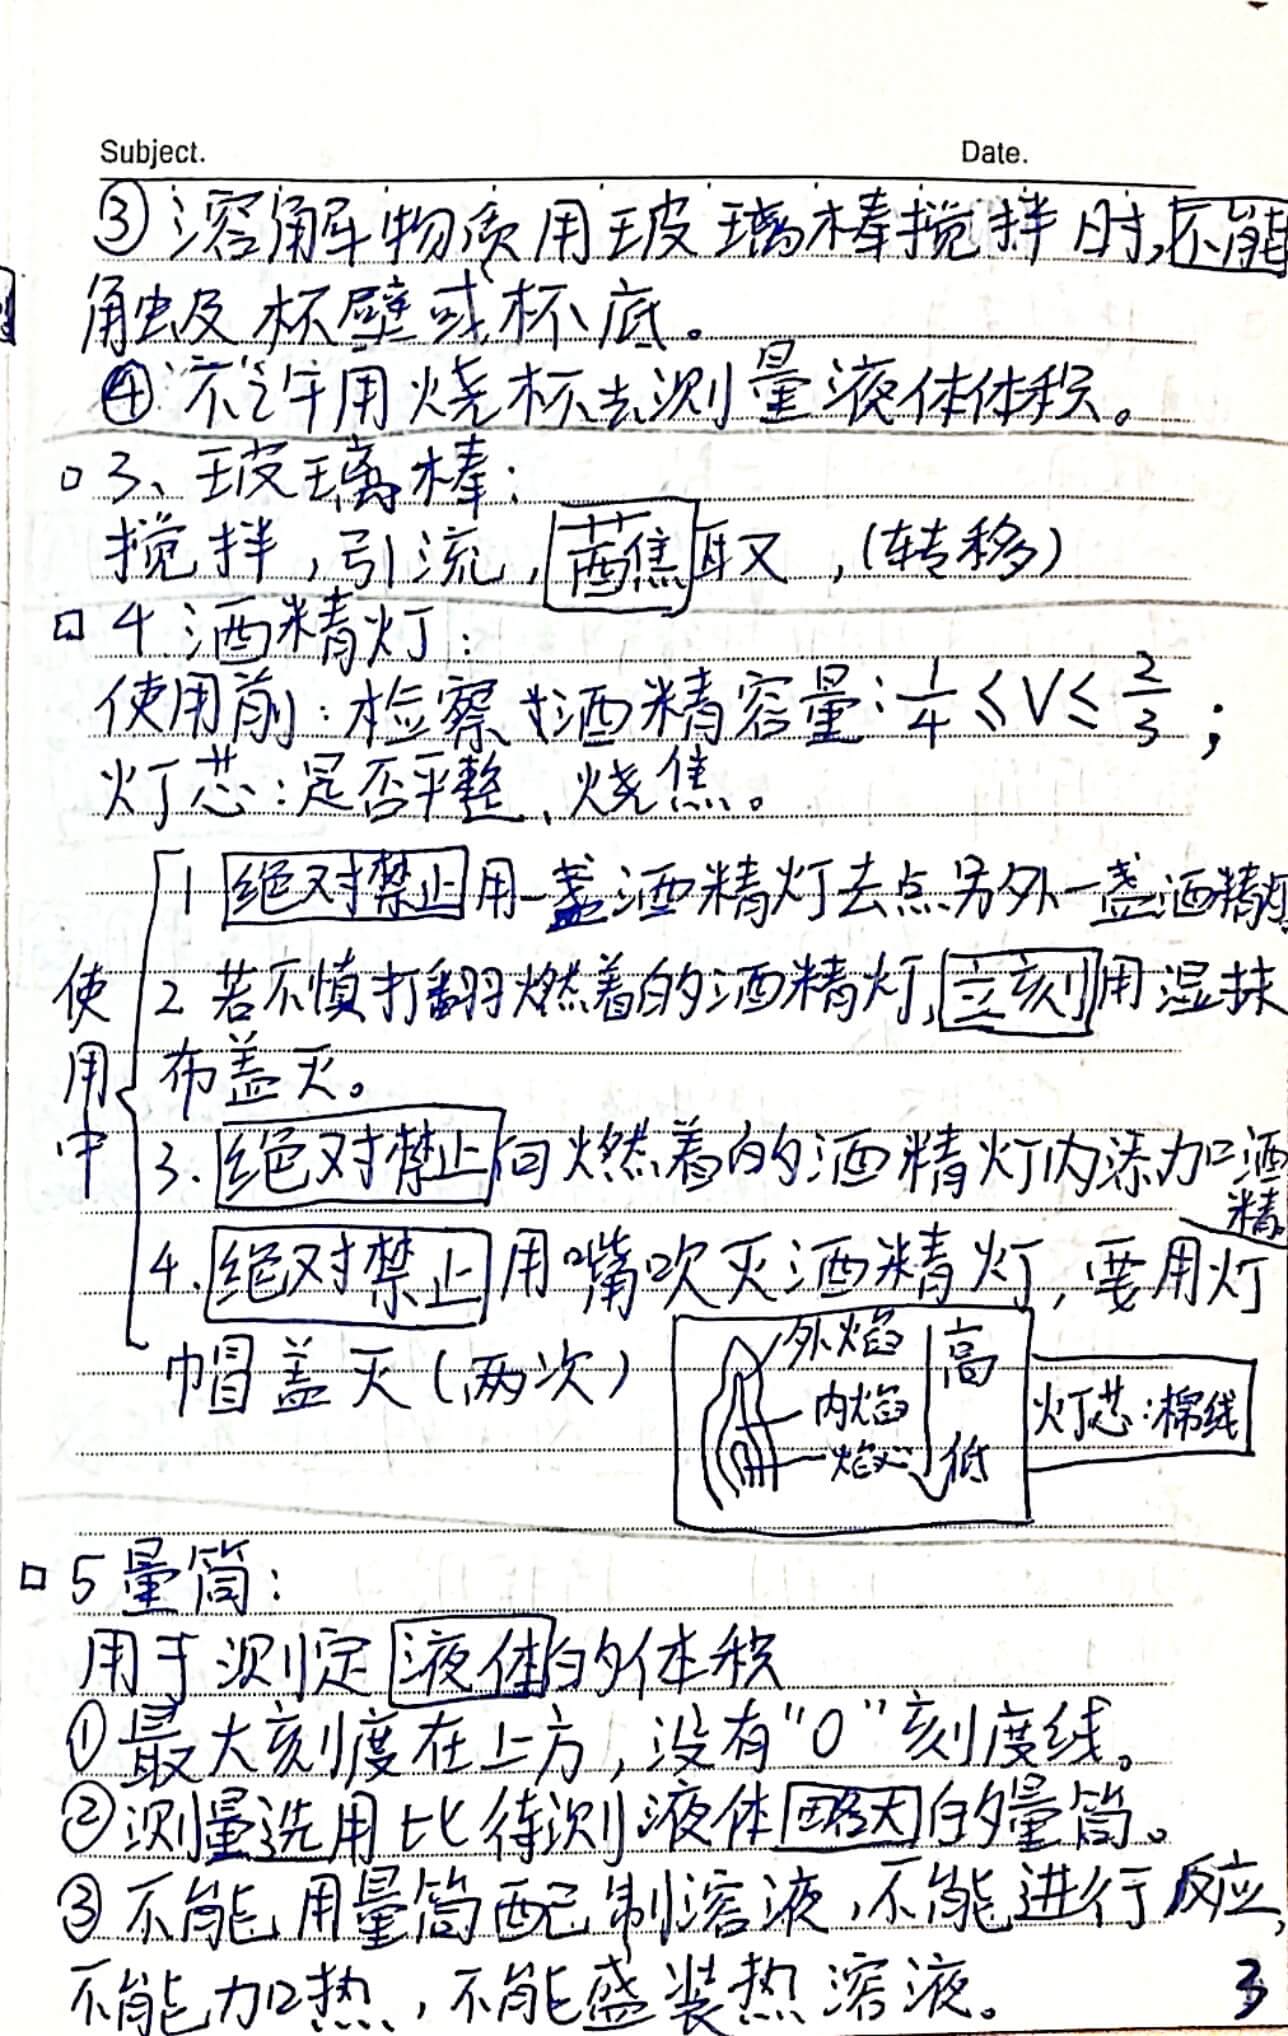 Subject. Date.
③溶解物质用玻璃棒搅拌时,不能
触及杯壁或杯底。
④不许用烧杯去测量液体体积。
3、玻璃棒:
搅拌,引流,蘸取,(转移)
4.酒精灯:
使用前:检察酒精容量:1/4≤V≤2/3;
灯芯:是否平整、烧焦。
使用中
1 绝对禁止用一盏酒精灯去点另外一盏酒精灯
2 若不慎打翻燃着的酒精灯,立刻用湿抹
布盖灭。
3.绝对禁止向燃着的酒精灯内添加酒
精。
4.绝对禁止用嘴吹灭酒精灯,要用灯
帽盖灭(两次)
外焰 高
内焰
焰心 低
灯芯:棉线
5 量筒:
用于测定液体的体积
①最大刻度在上方,没有"0"刻度线。
②测量选用比待测液体略大的量筒。
③不能用量筒配制溶液,不能进行反应,
不能加热,不能盛装热溶液。
3